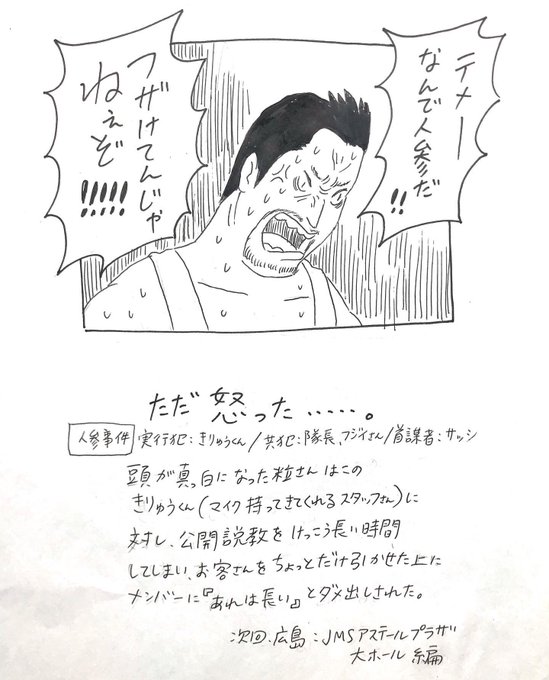 テメー
なんで人参だ
!!
フザけてんじゃ
ねぇぞ
!!!!!
ただ怒った……。
人参事件 実行犯:きりゅうくん/共犯:隊長、フジイさん/首謀者:サッシ
頭が真っ白になった粒さんはこの
きりゅうくん(マイク持ってきてくれるスタッフさん)に
対し、公開説教をけっこう長い時間
してしまい、お客さんをちょっとだけ引かせた上に
メンバーに『あれは長い』とダメ出しされた。
次回、広島:JMSアステールプラザ
大ホール編